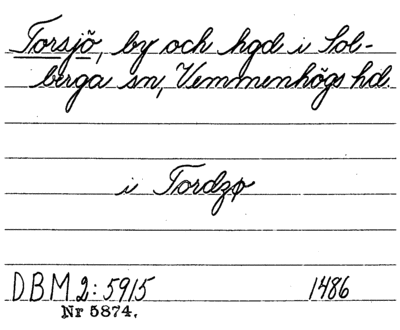 Torsjö, by och hgd i Sol-
berga sn, Vemmenhögs hd.
i Tordzø
DBM 2:5915 1486
Nr 5874.